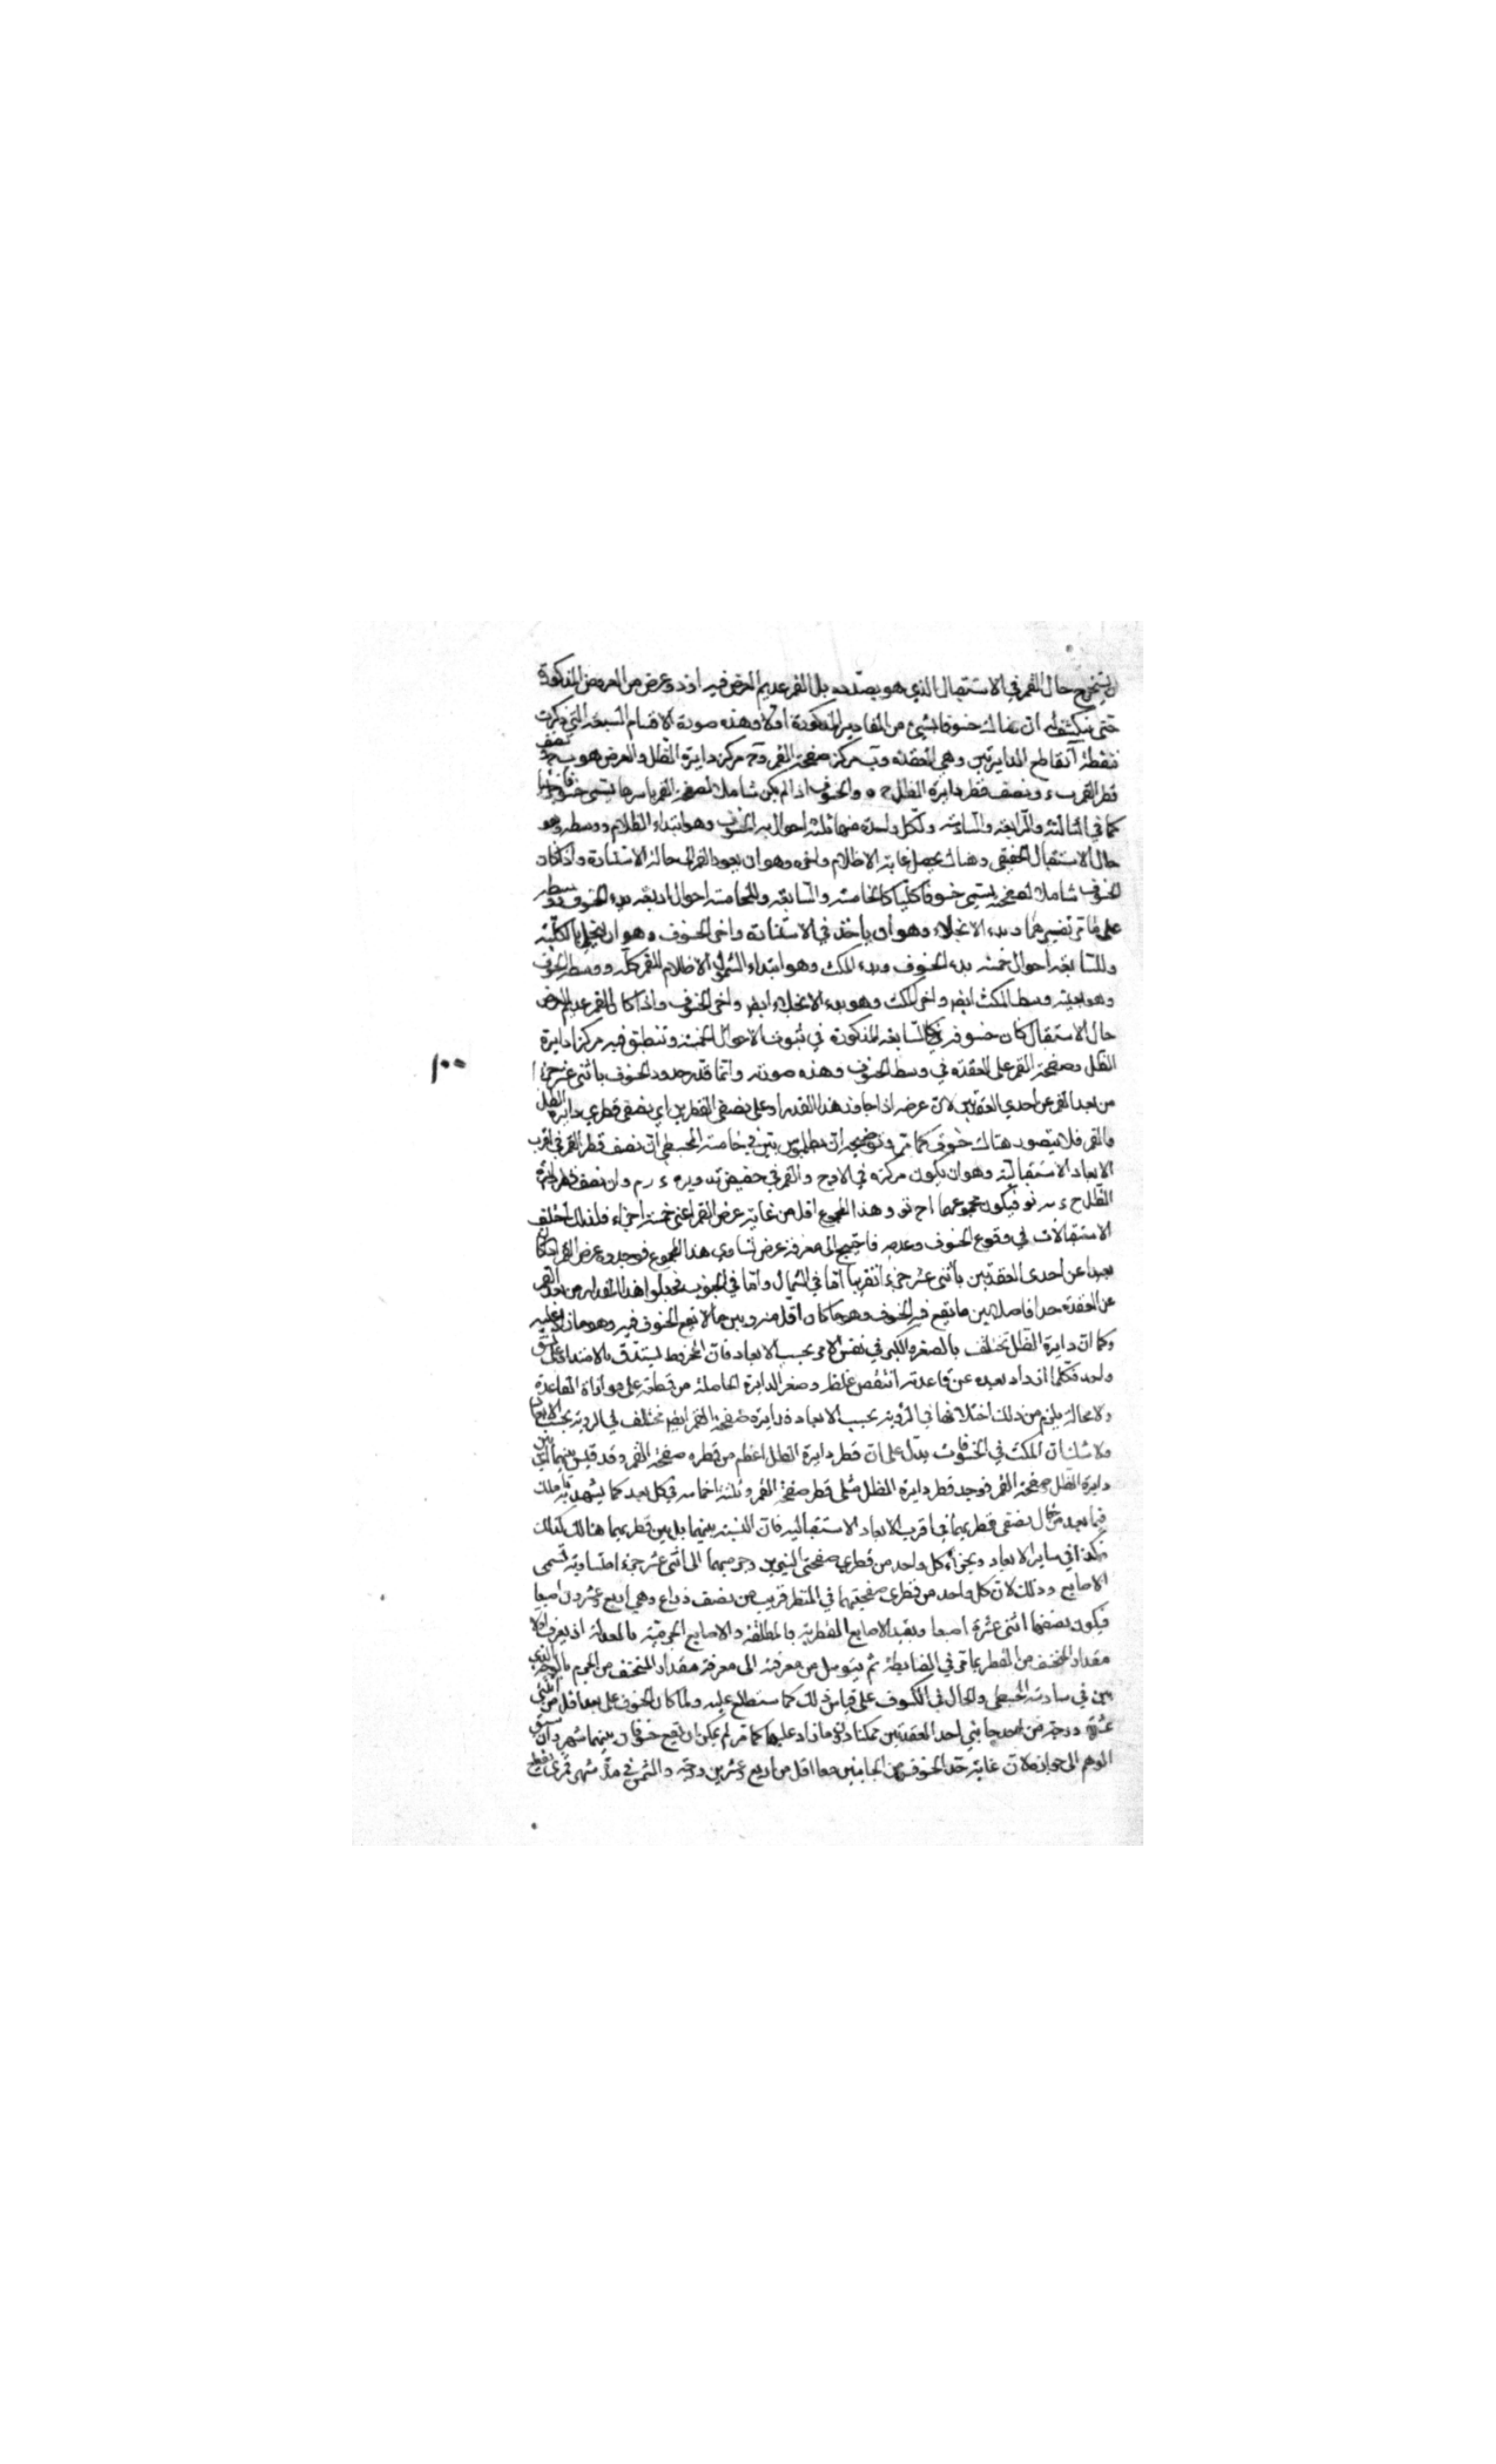 ليستخرج حال القمر في الاستقبال الذي هو بصدده بل القمر عديم العرض فيه او ذو عرض من العروض المذكورة
حتى ينكشف له ان هناك خسوفا بشيء من المقادير المذكورة اولا وهذه صورة الاقسام السبعة التي ذكرت
فنقطة آ تقاطع الدايرتين وهي العقدة و ب مركز صفحة القمر و ح مركز دايرة الظل والعرض هو ب ح ونصف
قطر القمر ب ء ونصف قطر دايرة الظل ح ه والخسوف اذا لم يكن شاملا لصفحة القمر باسرها يسمى خسوفا جزئيا
كما في الثالثة والرابعة والسادسة ولكل واحدة منها ثلثة احوال بدء الخسوف وهو ابتداء الظلام ووسطه وهو
حال الاستقبال الحقيقي وهناك يحصل غاية الاظلام واخره وهو ان يعود القمر الى حالة الاستنارة واذا كان
الخسوف شاملا لصفحته يسمى خسوفا كليا كالخامسة والسابعة وللخامسة احوال اربعة بدء الخسوف ووسطه
على ما مر تفسيرهما وبدء الانجلاء وهو ان ياخذ في الاستنارة واخر الخسوف وهو ان ينجلي بالكلية
وللسابعة احوال خمسة بدء الخسوف وبدء المكث وهو ابتداء الشمول الاظلام للقمر كله ووسط الخسوف
وهو بعينه وسط المكث ايضر واخر المكث وهو بدء الانجلاء ايضر واخر الخسوف واذا كان القمر عديم العرض
حال الاستقبال كان خسوفه كالسابعة المذكورة في ثبوت الاحوال الخمسة وتنطبق فيه مركزا دايرة
الظل وصفحة القمر على العقدة في وسط الخسوف وهذه صورته وانما قدر حدود الخسوف باثنى عشر جزءا
١٠٠
من بعد القمر عن احدي العقدتين لان عرضه اذا جاوز هذا القدر زاد على نصفي القطرين اي نصفي قطري دايرة الظل
والقمر فلا يتصور هناك خسوف كما مر وتوضيحه ان بطلميوس بين في خامسة المجسطي ان نصف قطر القمر في اقرب
الابعاد الاستقبالية وهو ان يكون مركزه في الاوج والقمر في حضيض تدويره وان نصف قطر دايرة
الظل فيكون مجموعهما وهذا المجموع اقل من غاية عرض القمر اعني خمسة اجزاء فلذلك اختلف
الاستقبالات في وقوع الخسوف وعدمه فاحتيج الى معرفة عرض يساوي هذا المجموع فوجدوه عرض القمر اذا كان
بعيدا عن احدى العقدتين باثنى عشر جزءا تقريبا اما في الشمال واما في الجنوب فجعلوا هذا المقدار من بعد القمر
عن العقدة حدا فاصلا بين ما يقع فيه الخسوف وهو ما كان اقل منه وبين ما لا يقع الخسوف فيه وهو ما زاد عليه
وكما ان دايرة الظل تختلف بالصغر والكبر في نفس الامر بحسب الابعاد فان المخروط يستدق بالامتداد على نسق
واحد فكلما ازداد بعده عن قاعدته انتقص غلظه وصغر الدايرة الحاصلة من قطعه على موازاة القاعدة
ولا محالة يلزم من ذلك اختلافها في الرؤية بحسب الابعاد فدايرة صفحة القمر ايضر تختلف في الروية بحسب الابعاد
ولا شك ان المكث في الخسوفات يدل على ان قطر دايرة الظل اعظم من قطر صفحة القمر وقد قيس بينهما اي بين
دايرة الظل وصفحة القمر فوجد قطر دايرة الظل مثلي قطر صفحة القمر وثلثة اخماسه في كل بعد كما يشهد به تاملك
فيما بعد من حال نصفي قطريهما في اقرب الابعاد الاستقبالية فان النسبة بينهما بل بين قطريهما هناك كذلك
وكذا في ساير الابعاد ويجزأ كل واحد من قطري صفحتي النيرين وجرميهما الى اثنى عشر جزءا متساوية تسمى
الاصابع وذلك لان كل واحد من قطري صفحتيهما في المنظر قريب من نصف ذراع وهي اربع وعشرون اصبعا
فيكون نصفها اثنى عشرة اصبعا ويقيد الاصابع القطرية بالمطلقة والاصابع الجرمية بالمعدلة اذ يعرف اولا
مقدار المنخسف من القطر بما مر في الضابطة ثم يتوسل من معرفته الى معرفة مقدار المنخسف من الجرم بالوجه الذي
بين في سادسة المجسطي والحال في الكسوف على قياس ذلك كما ستطلع عليه ولما كان الخسوف على بعد اقل من اثني
عشرة درجة من احد جانبي احد العقدتين ممكنا دون ما زاد عليها كما مر لم يمكن ان يقع خسوفان بينهما شهر وان سبق
الوهم الى جوازه لان غاية حد الخسوف من الجانبين معا اقل من اربع وعشرين درجة والشمس في مدة شهر قمري تقطع